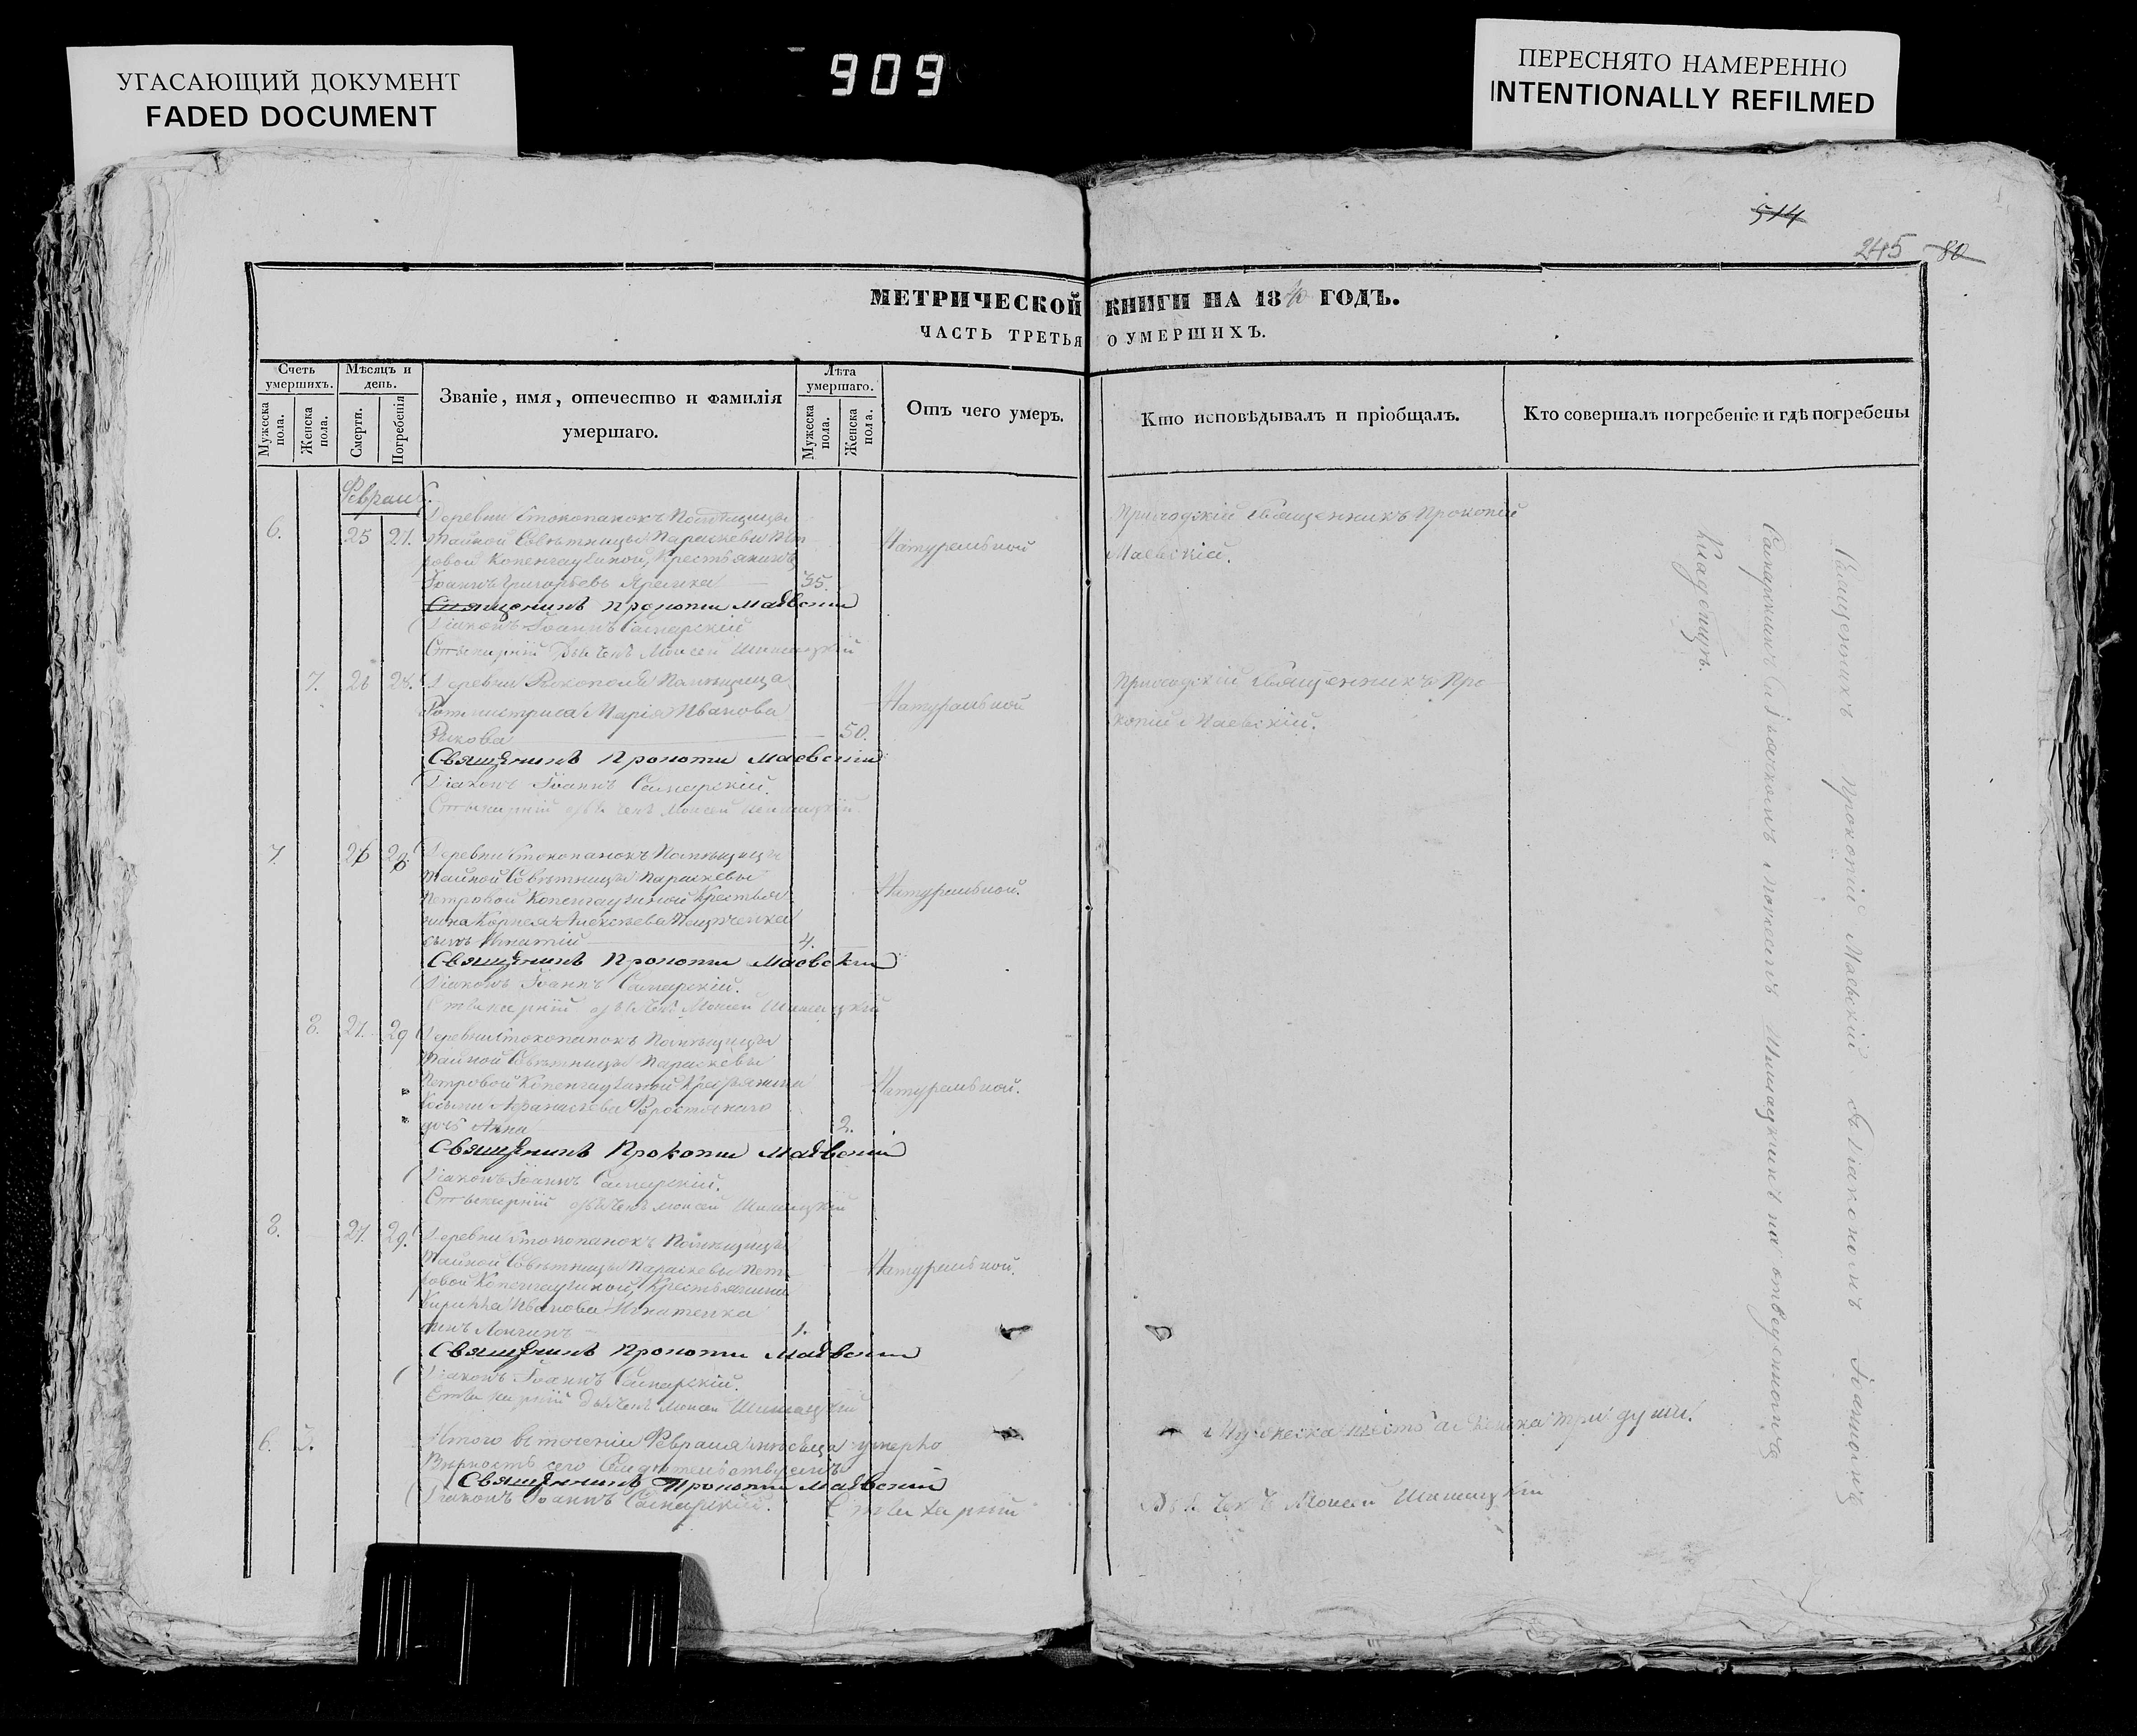 УГАСАЮЩИЙ ДОКУМЕНТ
FADED DOCUMENT
909
ПЕРЕСНЯТО НАМЕРЕННО
INTENTIONALLY REFILMED
514
245 80
МЕТРИЧЕСКОЙ КНИГИ НА 1840 ГОДЪ.
ЧАСТЬ ТРЕТЬЯ О УМЕРШИХЪ.
Счетъ умершихъ.
Мужеска пола.
Женска пола.
Мѣсяцъ и день.
Смерти.
Погребенія
Званіе, имя, отечество и фамилія умершаго.
Лѣта умершаго.
Мужеска пола.
Женска пола.
Отъ чего умеръ.
Кто исповѣдывалъ и пріобщалъ.
Кто совершалъ погребеніе и гдѣ погребены
Февраль.
6. 25 27. Деревни Стокопанокъ Помѣщицы
Тайной Совѣтницы Параскевы Пет
ровой Копенгаузиной, Крестьянинъ
Іоаннъ Григорьевъ 35. Натуральной
Приходскій Священникъ Прокопій
Маевскій.
Священникъ Прокопій Маевскій
Діаконъ Іоаннъ Самарскій
Стихарный Дьячекъ Моисей Шишацкій
7. 26 28. Деревни Рыкополя Помѣщица
Ротмистриса Марія Иванова
Рыкова 50. Натуральной
Приходскій Священникъ Про
копій Маевскій.
Священникъ Прокопій Маевскій
Діаконъ Іоаннъ Самарскій.
Стихарный дьячекъ Моисей Шишацкій
7. 26 28. Деревни Стокопанокъ Помѣщицы
Тайной Совѣтницы Параскевы
Петровой Копенгаузиной Крестья
нина Корнея Алексѣева
сынъ Игнатій 4. Натуральной.
Священникъ Прокопій Маевскій
Діаконъ Іоаннъ Самарскій.
Стихарный дьячекъ Моисей Шишацкій
8. 27. 29 Деревни Стокопанокъ Помѣщицы
Тайной Совѣтницы Параскевы
Петровой Копенгаузиной Крестьянина
Афанасіева
дочь Анна 2. Натуральной.
Священникъ Прокопій Маевскій
Діаконъ Іоаннъ Самарскій.
Стихарный дьячекъ Моисей Шишацкій
8. 27. 29. Деревни Стокопанокъ Помѣщицы
Тайной Совѣтницы Параскевы Пет
ровой Копенгаузиной, Крестьянина
Кирилла Иванова Игнатенка
сынъ Лонгинъ 1. Натуральной.
Священникъ Прокопій Маевскій
Діаконъ Іоаннъ Самарскій.
Стихарный Дьячекъ Моисей Шишацкій
6. 3. Итого въ теченіи Февраля мѣсяца умерло Мужеска шесть а женска три души.
Вѣрность сего Свидѣтельствуемъ
Священникъ Прокопій Маевскій
Діаконъ Іоаннъ Самарскій. Стихарный Дьячекъ Моисей Шишацкій
Священникъ Прокопій Маевскій съ Діакономъ Іоанномъ
Самарскимъ и Дьячкомъ Моисеемъ Шишацкимъ на отведенномъ
Кладбищѣ.